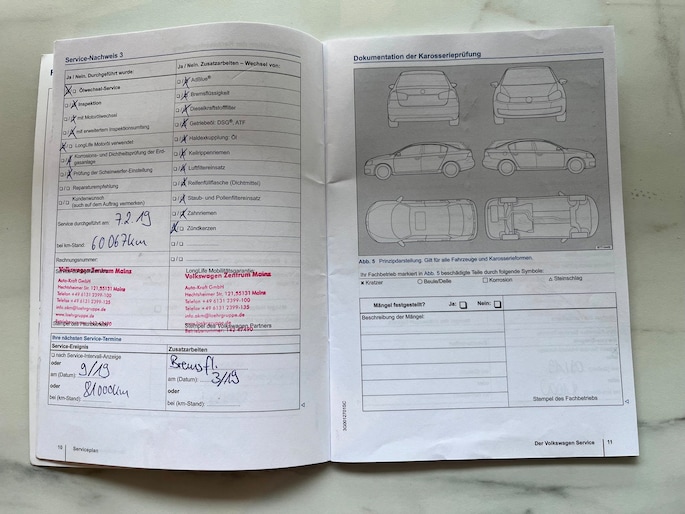 Service-Nachweis 3
Ja / Nein. Durchgeführt wurde:
Ölwechsel-Service
Inspektion
mit Motorölwechsel
mit erweitertem Inspektionsumfang
LongLife Motoröl verwendet
Korrosions- und Dichtheitsprüfung der Erd-
gasanlage
Prüfung der Scheinwerfer-Einstellung
Reparaturempfehlung
Kundenwunsch
(auch auf dem Auftrag vermerken)
Service durchgeführt am: 7.2.19
bei km-Stand: 60 067km
Rechnungsnummer:
Volkswagen Zentrum Mainz
Auto-Kraft GmbH
Hechtsheimer Str. 121, 55131 Mainz
Telefon +49 6131 2399-100
Telefax +49 6131 2399-135
Ja / Nein. Zusatzarbeiten – Wechsel von:
AdBlue®
Bremsflüssigkeit
Dieselkraftstofffilter
Getriebeöl: DSG®, ATF
Haldexkupplung: Öl
Keilrippenriemen
Luftfiltereinsatz
Reifenfüllflasche (Dichtmittel)
Staub- und Pollenfiltereinsatz
Zahnriemen
Zündkerzen
LongLife Mobilitätsgarantie
Volkswagen Zentrum Mainz
Auto-Kraft GmbH
Hechtsheimer Str. 121, 55131 Mainz
Telefon +49 6131 2399-100
Telefax +49 6131 2399-135
Stempel des Volkswagen Partners
Ihre nächsten Service-Termine
Service-Ereignis
nach Service-Intervall-Anzeige
oder
am (Datum): 9/19
oder
bei (km-Stand): 81000km
Zusatzarbeiten
Bremsfl.
am (Datum): 3/19
oder
bei (km-Stand):
10 Serviceplan
Dokumentation der Karosserieprüfung
Abb. 5 Prinzipdarstellung. Gilt für alle Fahrzeuge und Karosserieformen.
Ihr Fachbetrieb markiert in Abb. 5 beschädigte Teile durch folgende Symbole:
x Kratzer □ Beule/Delle ○ Korrosion △ Steinschlag
Mängel festgestellt? Ja: Nein:
Beschreibung der Mängel:
Stempel des Fachbetriebs
Der Volkswagen Service 11